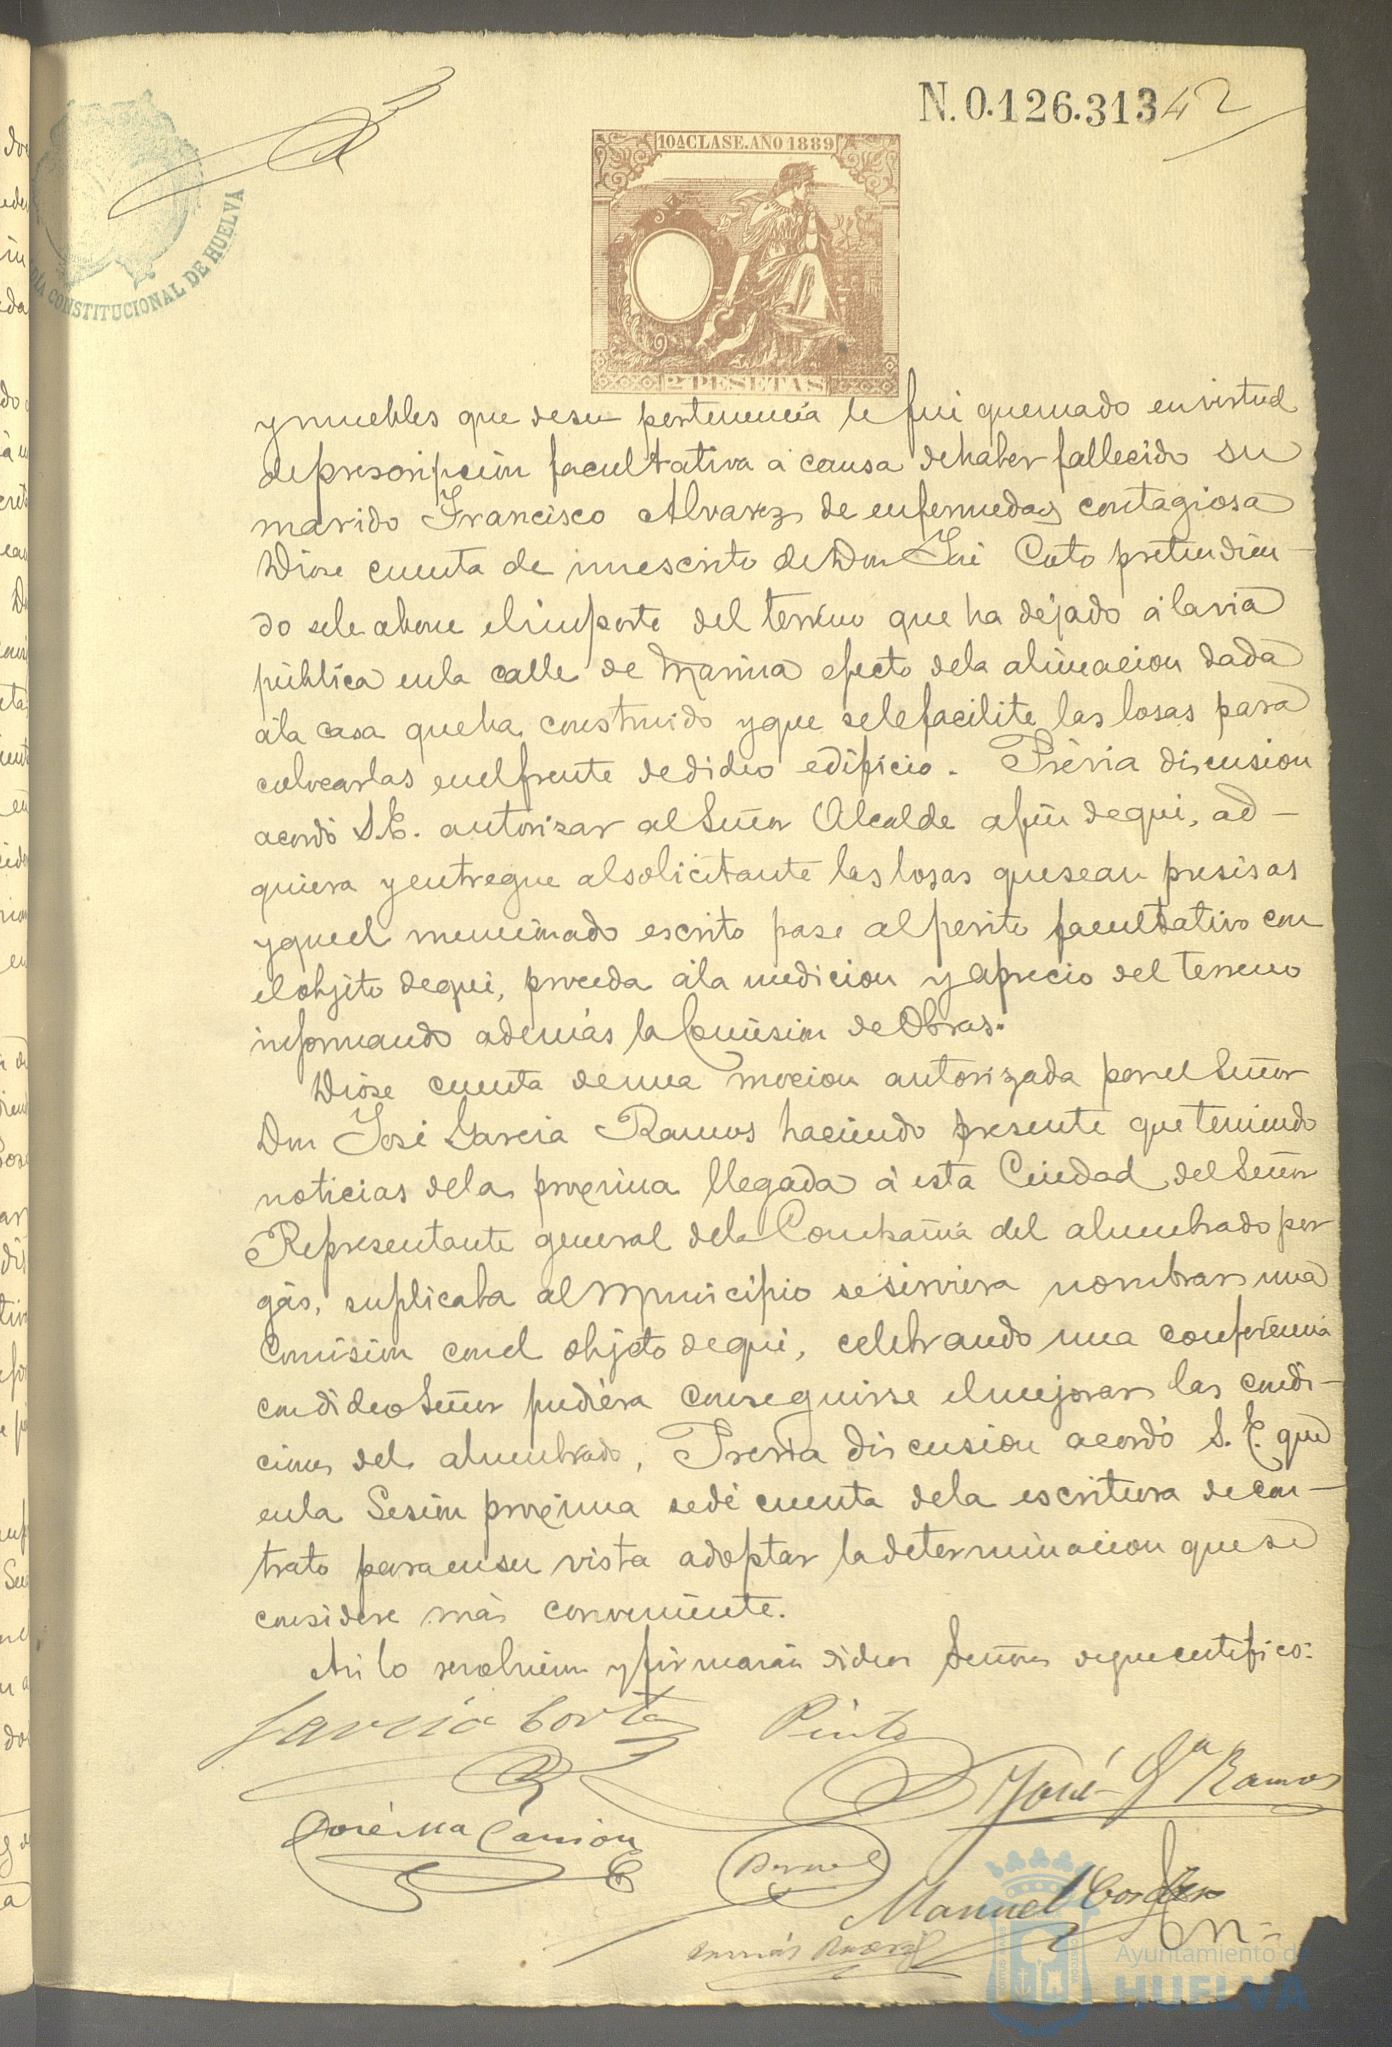 N. 0.126.313
42
10ª CLASE. AÑO 1889
2 PESETAS
CONSTITUCIONAL DE HUELVA
y muebles que de su pertenencia le fué quemado en virtud
de presoripción facultativa á causa de haber fallecido su
marido Francisco Alvarez de enfermedad contagiosa
Dióse cuenta de un escrito de Don José Coto pretendien-
do se le abone el importe del terreno que ha dejado á la via
pública en la calle de Marina efecto de la alineacion dada
á la casa que ha construido y que se le facilite las losas para
colocarlas en el frente de dicho edificio. Prévia discusion
acordó S.E. autorizar al Señor Alcalde á fin de que, ad-
quiera y entregue al solicitante las losas que sean presisas
y que el mencionado escrito pase al perito facultativo con
el objeto de que, proceda á la medicion y aprecio del terreno
informando además la Comisión de Obras.
Dióse cuenta de una mocion autorizada por el Señor
Don José Garcia Ramos haciendo presente que teniendo
noticias de la proxima llegada á esta Ciudad del Señor
Representante general de la Compañia del alumbrado por
gás, suplicaba al Municipio se sirviera nombrar una
Comisión con el objeto de que, celebrando una conferencia
con dicho Señor pudiera conseguirse el mejorar las condi-
ciones del alumbrado, Prévia discusion acordó S. E. que
en la Sesión proxima se dé cuenta de la escritura de con-
trato para en su vista adoptar la determinacion que se
considere más conveniente.
Asi lo resolvieron y firmarán dichos Señores de que certifico:
Garcia Cortes Pinto
José Gª Ramos
José Mª Carrion
Bernal
Manuel Cordero
Ayuntamiento de
HUELVA